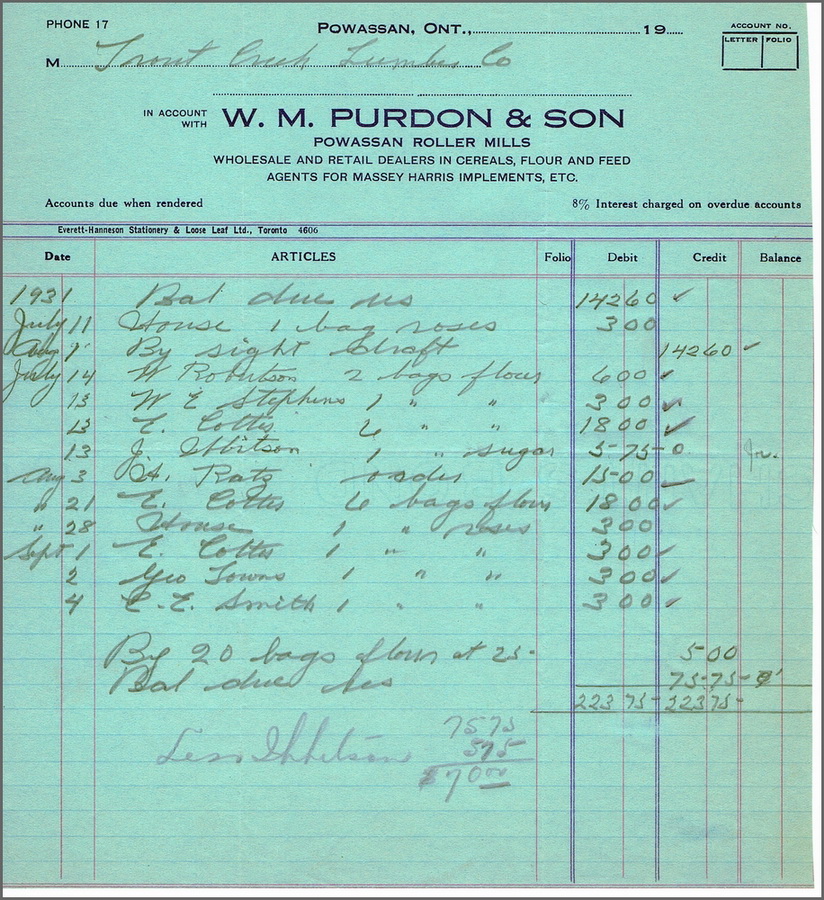 PHONE 17
POWASSAN, ONT., 19
ACCOUNT NO.
LETTER FOLIO
M Trout Creek Lumber Co
IN ACCOUNT WITH
W. M. PURDON & SON
POWASSAN ROLLER MILLS
WHOLESALE AND RETAIL DEALERS IN CEREALS, FLOUR AND FEED
AGENTS FOR MASSEY HARRIS IMPLEMENTS, ETC.
Accounts due when rendered 8% Interest charged on overdue accounts
Everett-Hanneson Stationery & Loose Leaf Ltd., Toronto 4606
Date ARTICLES Folio Debit Credit Balance
1931 Bal due us 142 60 ✓
July 11 House 1 bag roses 3 00
Aug By sight draft 142 60 ✓
July 14 W Robertson 2 bags flour 6 00 ✓
13 W E Stephens 1 " " 3 00 ✓
13 E. Cottes 6 " " 18 00 ✓
13 J. Ibbitson 1 " sugar 5 75
Aug 3 H. Ratz 15 00 ✓
" 21 E. Cottes 6 bags flour 18 00 ✓
" 28 House 1 " roses 3 00
Sept 1 E. Cottes 1 " " 3 00 ✓
2 Geo Towns 1 " " 3 00 ✓
4 C. E. Smith 1 " " 3 00 ✓
By 20 bags flour at 25 5 00
Bal due us 75 75
223 75 223 75
75 75
Less Ibbitson 5 75
$70 00